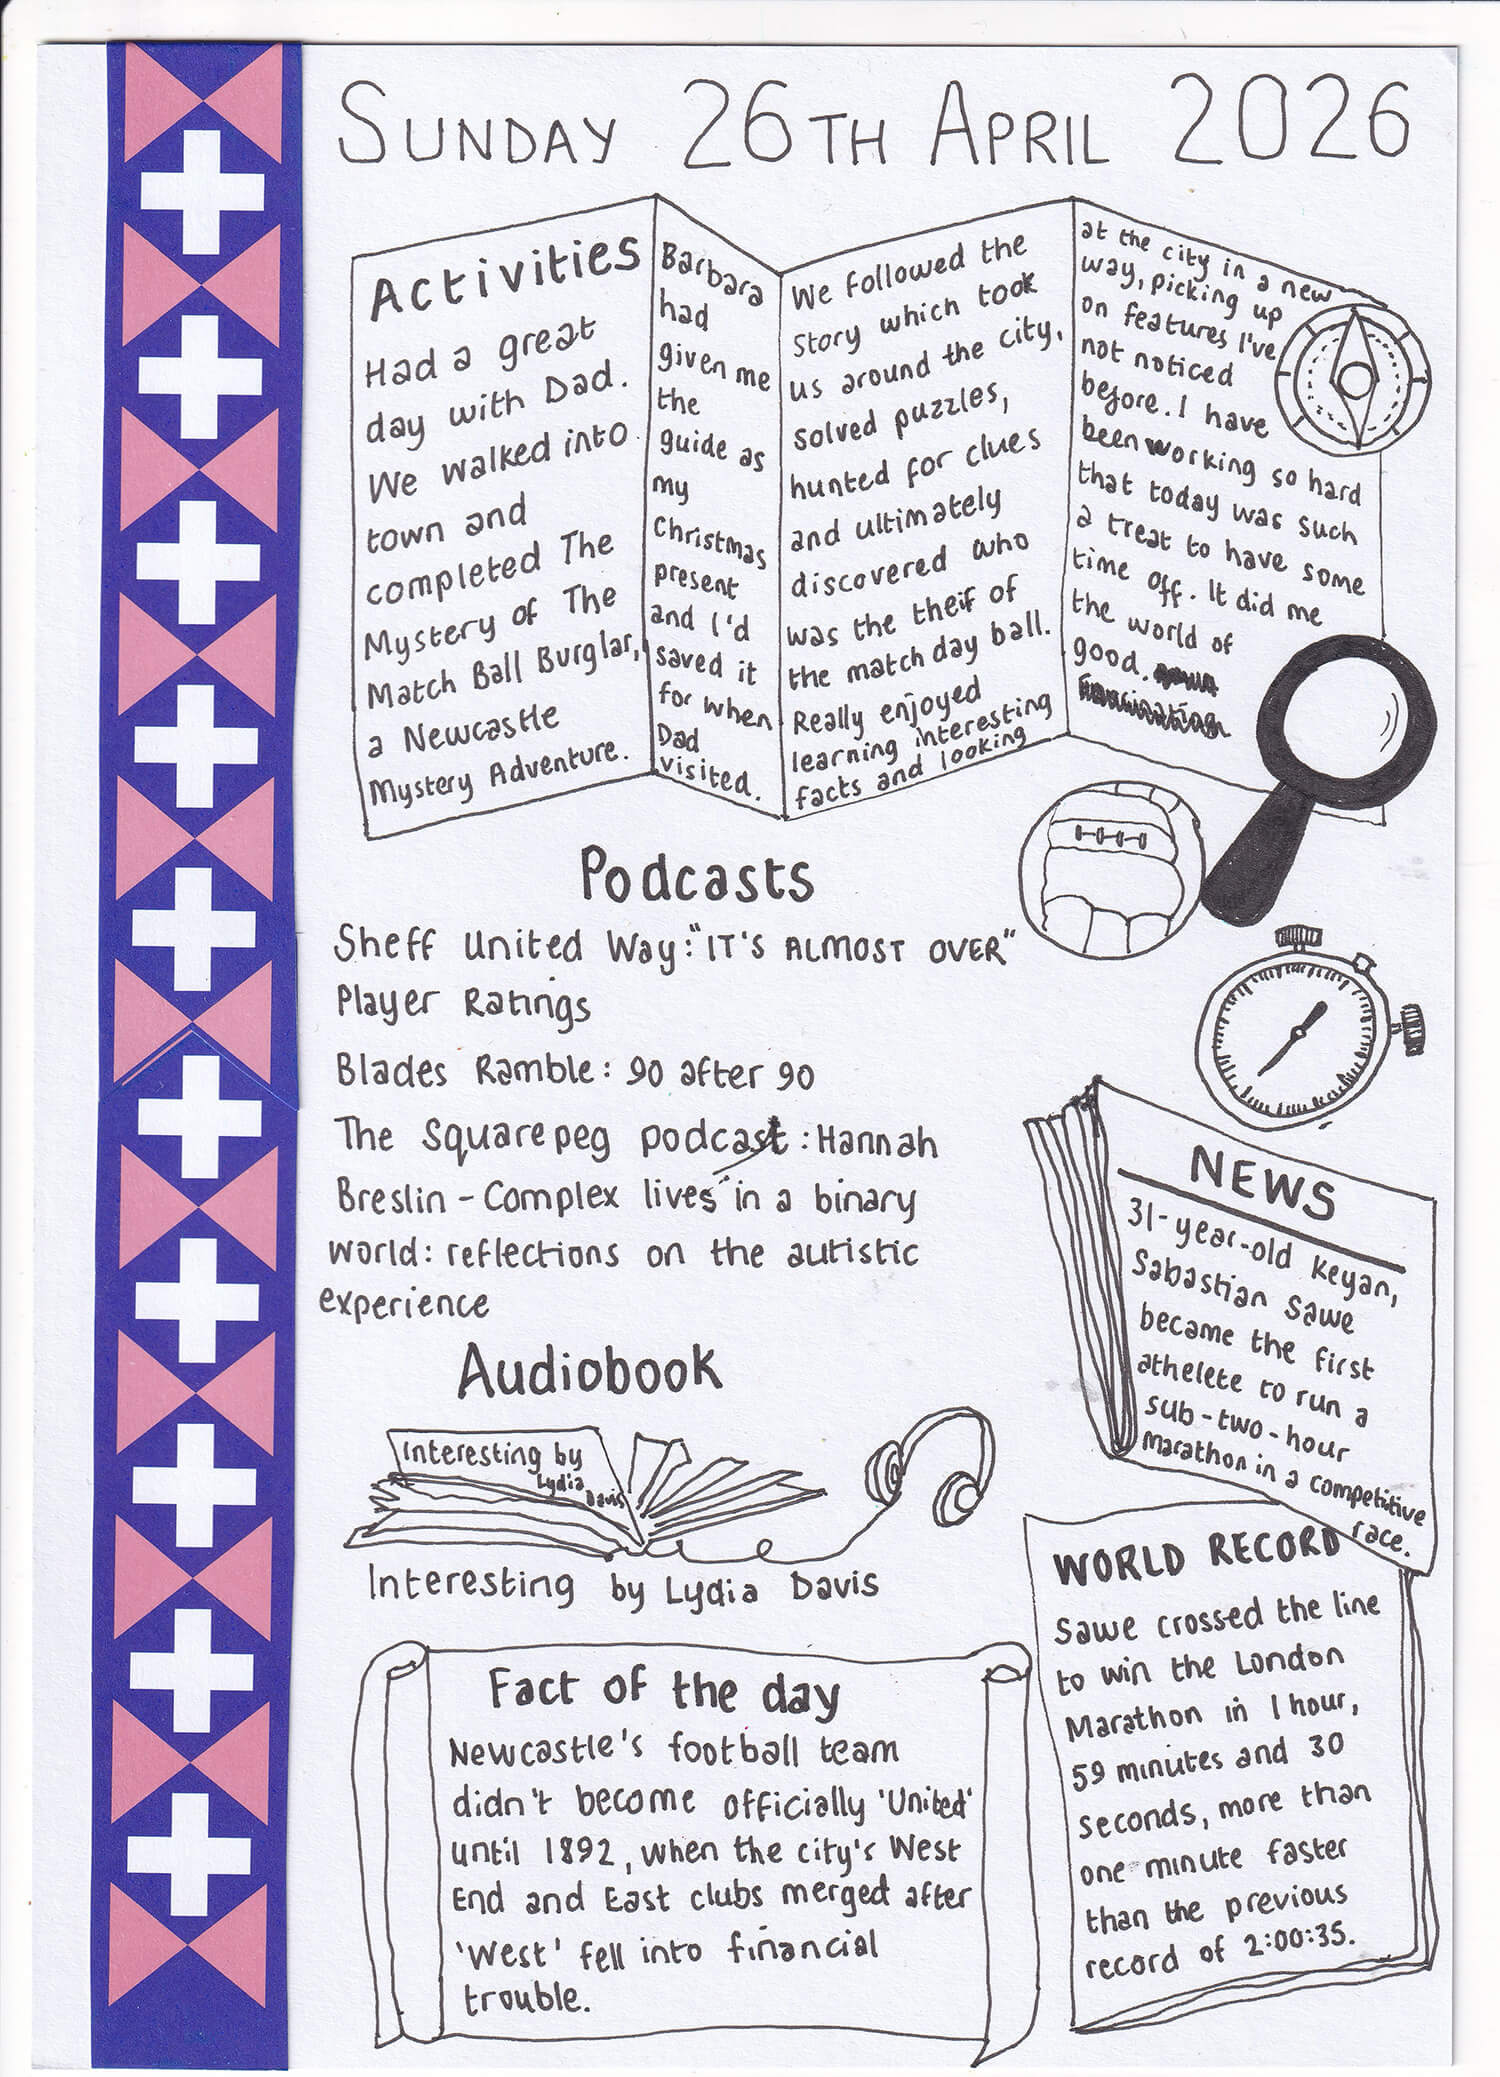 SUNDAY 26TH APRIL 2026
Activities
Had a great
day with Dad.
We walked into
town and
completed The
Mystery of The
Match Ball Burglar,
a Newcastle
Mystery Adventure.
Barbara
had
given me
the
guide as
my
Christmas
present
and I'd
saved it
for when
Dad
visited.
We followed the
story which took
us around the city,
solved puzzles,
hunted for clues
and ultimately
discovered who
was the theif of
the match day ball.
Really enjoyed
learning interesting
facts and looking
at the city in a new
way, picking up
on features I've
not noticed
before. I have
been working so hard
that today was such
a treat to have some
time off. It did me
the world of
good.
Podcasts
Sheff United Way: "IT'S ALMOST OVER"
Player Ratings
Blades Ramble: 90 after 90
The Squarepeg podcast: Hannah
Breslin - Complex lives in a binary
world: reflections on the autistic
experience
Audiobook
Interesting by
Lydia
Davis
Interesting by Lydia Davis
Fact of the day
Newcastle's football team
didn't become officially 'United'
until 1892, when the city's West
End and East clubs merged after
'West' fell into financial
trouble.
NEWS
31-year-old Keyan,
Sabastian Sawe
became the first
athelete to run a
sub-two-hour
marathon in a competitive
race.
WORLD RECORD
Sawe crossed the line
to win the London
Marathon in 1 hour,
59 minutes and 30
seconds, more than
one minute faster
than the previous
record of 2:00:35.